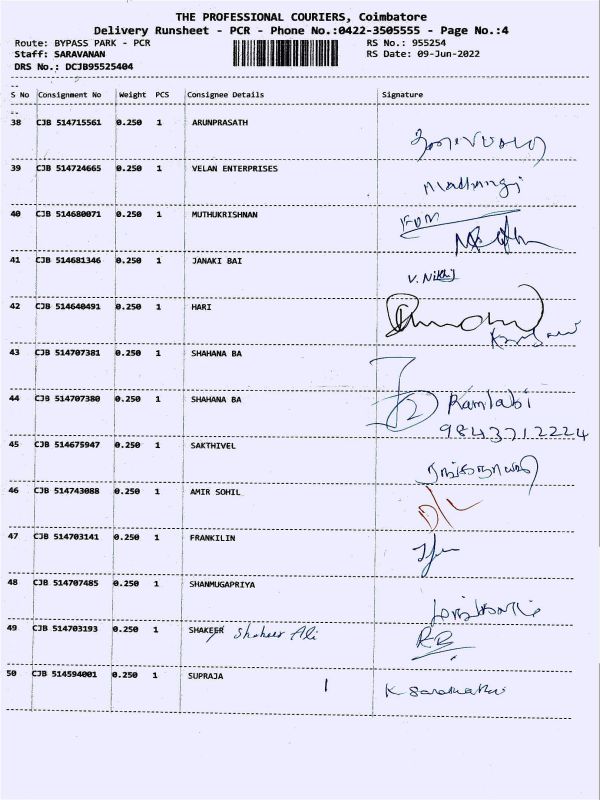 THE PROFESSIONAL COURIERS, Coimbatore
Delivery Runsheet - PCR - Phone No.:0422-3505555 - Page No.:4
Route: BYPASS PARK - PCR RS No.: 955254
Staff: SARAVANAN RS Date: 09-Jun-2022
DRS No.: DCJB95525404
--
S No Consignment No Weight PCS Consignee Details Signature
--
38 CJB 514715561 0.250 1 ARUNPRASATH
39 CJB 514724665 0.250 1 VELAN ENTERPRISES
40 CJB 514680071 0.250 1 MUTHUKRISHNAN
41 CJB 514681346 0.250 1 JANAKI BAI
42 CJB 514640491 0.250 1 HARI
43 CJB 514707381 0.250 1 SHAHANA BA
44 CJB 514707380 0.250 1 SHAHANA BA Ramlabi
9843712224
45 CJB 514675947 0.250 1 SAKTHIVEL
46 CJB 514743088 0.250 1 AMIR SOHIL D/L
47 CJB 514703141 0.250 1 FRANKILIN
48 CJB 514707485 0.250 1 SHANMUGAPRIYA
49 CJB 514703193 0.250 1 SHAKEER Shakeer Ali RB
50 CJB 514594001 0.250 1 SUPRAJA